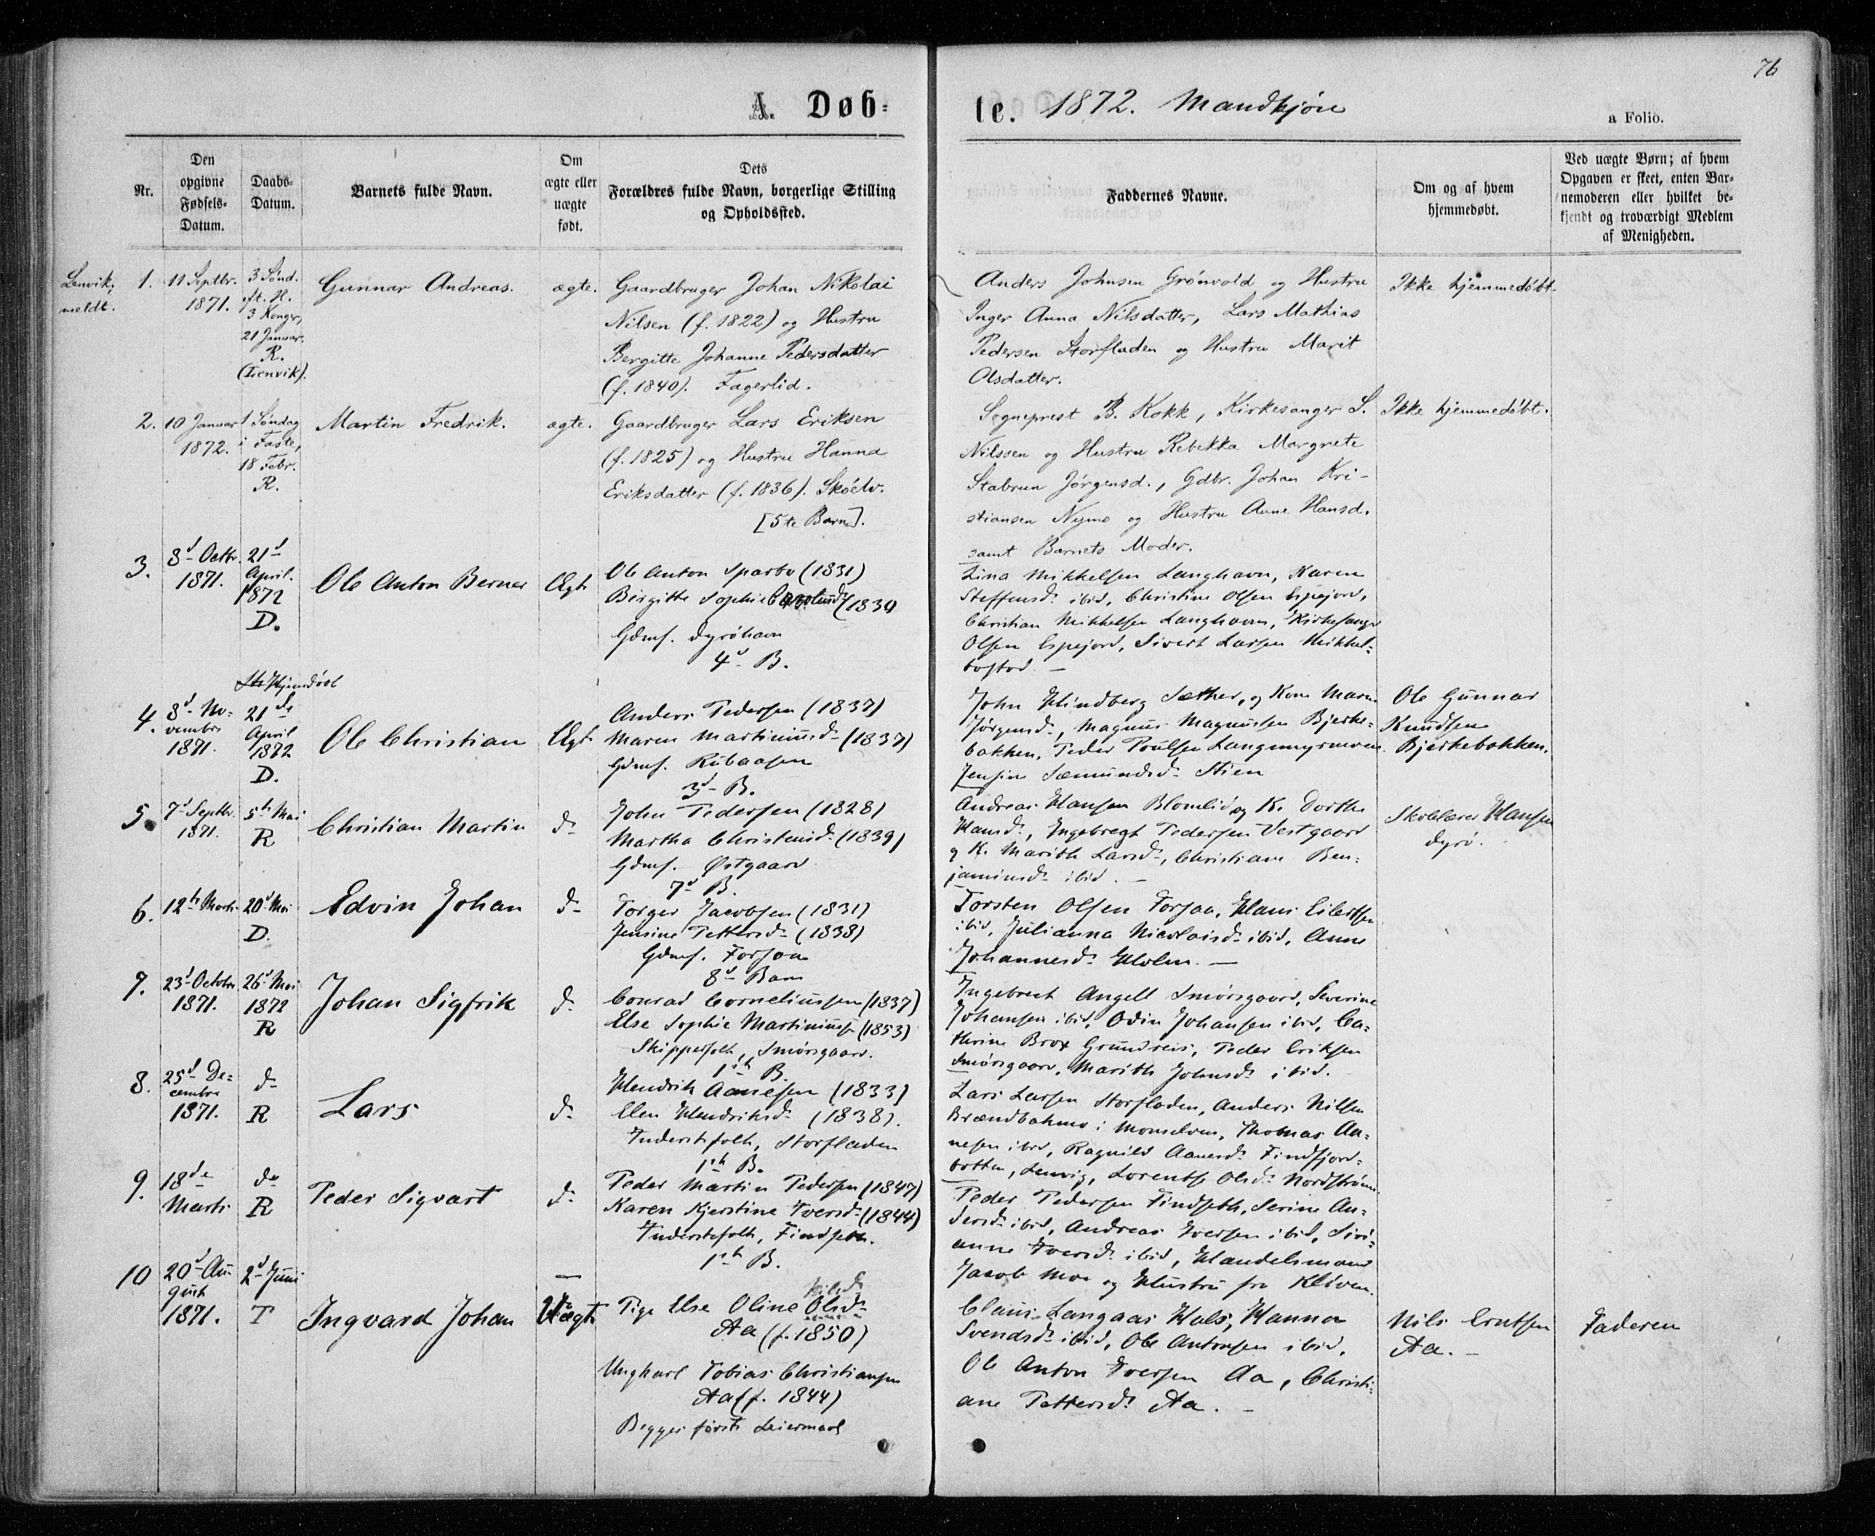 76
A. Døb-
te. 1872. Mandkjøn
a Folio.
Nr.
Den
opgivne
Fødsels-
Datum.
Daabs-
Datum.
Barnets fulde Navn.
Om
ægte eller
uægte
født.
Dets
Forældres fulde Navn, borgerlige Stilling
og Opholdssted.
Faddernes Navne.
Om og af hvem
hjemmedøbt.
Ved uægte Børn; af hvem
Opgaven er skeet, enten Bar-
nemoderen eller hvilket be-
kjendt og troværdigt Medlem
af Menigheden.
Lenvik,
meldt.
1.
11 Septbr.
1871.
3 Sønd.
ft. H.
3 Konger,
21 Januar.
R.
(Lenvik).
Gunnar Andreas.
ægte.
Gaardbruger Johan Nikolai
Nilsen (f. 1822) og Hustru
Bergitte Johanne Pedersdatter
(f. 1840). Fagerlid.
Anders Johnsen Grønvold og Hustru
Inger Anna Nilsdatter, Lars Mathias
Pedersen Storfladen og Hustru Marit
Olsdatter.
Ikke hjemmedøbt.
2.
10 Januar
1872.
1 Søndag
i Faste,
18 Febr.
R.
Martin Fredrik.
ægte.
Gaardbruger Lars Eriksen
(f. 1825) og Hustru Hanna
Eriksdatter (f. 1836). Skøelv.
[5te Barn].
Sogneprest B. Kokk, Kirkesanger S.
Nilssen og Hustru Rebekka Margrete
Stabrun Jørgensd., Gdbr. Johan Kri-
stiansen Nymo og Hustru Anne Hansd.
samt Barnets Moder.
Ikke hjemmedøbt.
3.
8d Octbr.
1871.
21d
April.
1872
D.
Ole Anton Berner
Ægt
Ole Anton Sparbo (1831)
Birgitte Sophie (1830
Gdmf. Dyrøhavn
4d B.
Lina Mikkelsen Langhavn, Karen
Steffensd. ibid, Christine Olsen Espejord,
Christian Mikkelsen Langhavn, Kirkesanger
Olsen Espejord, Sivert Larsen Mikkel-
bostad. —
4.
8d No-
vembre
1871.
Hjemdøbt
21de
April
1872
D.
Ole Christian
Ægt
Anders Pedersen (1837)
Maren Martiniusd. (1837)
Gdmf. Kubaasen
3d B.
John Hindberg Sæther, og Kone Maren
Jørgensd., Magnus Magnussen Bjerke-
bakken, Peder Poulsen Langmyrmoen
Jensine Sæmundsd. Stien
Ole Gunnar
Knudsen
Bjerkebakken.
5.
7d Septbr.
1871.
5th Mai
R
Christian Martin
d.
John Pedersen (1828)
Martha Christensd. (1839)
Gdmf. Østgaard
7d B.
Andreas Hansen Blomlid og K. Dorthe
Hansd., Engebregt Pedersen Vestgaard
og K. Marith Larsd., Christiane Ben-
jaminsd. ibid. —
Skolelærer Hansen
Dyrø.
6.
12th Marts
20d Mai
D.
Edvin Johan
d.
Torger Jacobsen (1831)
Jensine Pettersd. (1838)
Gdmf. Forsaa
8d Barn
Torsten Olsen Forsaa, Klaus Eilertsen
ibid, Julianna Nicolaisd. ibid, Anne
Johannesd. Holm. —
7.
23d Octobr
1871.
26d Mai
1872
R
Johan Sigfrik
d.
Conrad Corneliussen (1837)
Else Sophie Martiniuss (1853)
Skipperfolk, Smørsgaard.
1st B.
Ingebrect Angell Smørsgaard, Severine
Johansen ibid, Odin Johansen ibid, Ca-
thrine Brox Grundreis, Peder Eriksen
Smørsgaard, Marith Johnsd. ibid.
8.
25d De-
cembre
1871.
d.
R
Lars
d.
Hendrik Aanesen (1833)
Elen Hendriksd. (1838).
Inderstfolk, Storfladen
1st B.
Lars Larsen Storfladen, Anders Nilsen
Brændbakmo i Monselven, Thomas Aa-
nesen ibid, Ragnild Aanesd. Findfjord-
botten, Lenvig, Lorentse Olsd. Nordstrømm
9.
18de
Marts
d.
R
Peder Sigvart
d.
Peder Martin Pedersen (1847)
Karen Kjerstine Iversd. (1844)
Inderstfolk, Findseth.
1st B.
Peder Pedersen Findseth, Serine An-
dersd. ibid, Andreas Iversen ibid, Siri-
anne Iversd. ibid, Handelsmand
Jacob Moe og Hustru fra Kløven.
10
20d Au
gust
1871.
2d Juni
T
Ingvard Johan
Uægt
Pige Else Oline Olsd. Nilsd.
Aa (f. 1850)
Ungkarl Tobias Christiansen
Aa (f. 1844)
Begges første Leiermaal
Claus Langaas Hals, Hanna
Svendsd. ibid, Ole Antonsen ibid,
Ole Anton Iversen Aa, Christi-
ane Pettersd. Aa. —
Nils Erntsen
Aa. —
Faderen